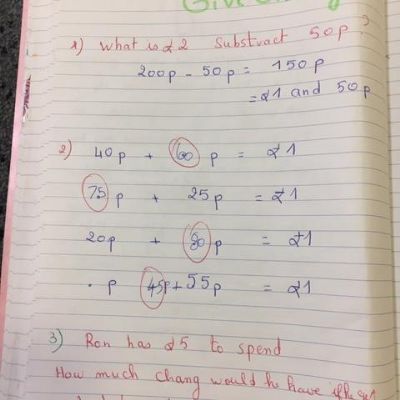 Give Chang
1) What is £2 Substract 50p?
200p - 50p = 150p
= £1 and 50p
2) 40p + 60 p = £1
75 p + 25p = £1
20p + 80 p = £1
. p 45p + 55p = £1
3) Ron has £5 to spend
How much chang would he have if he